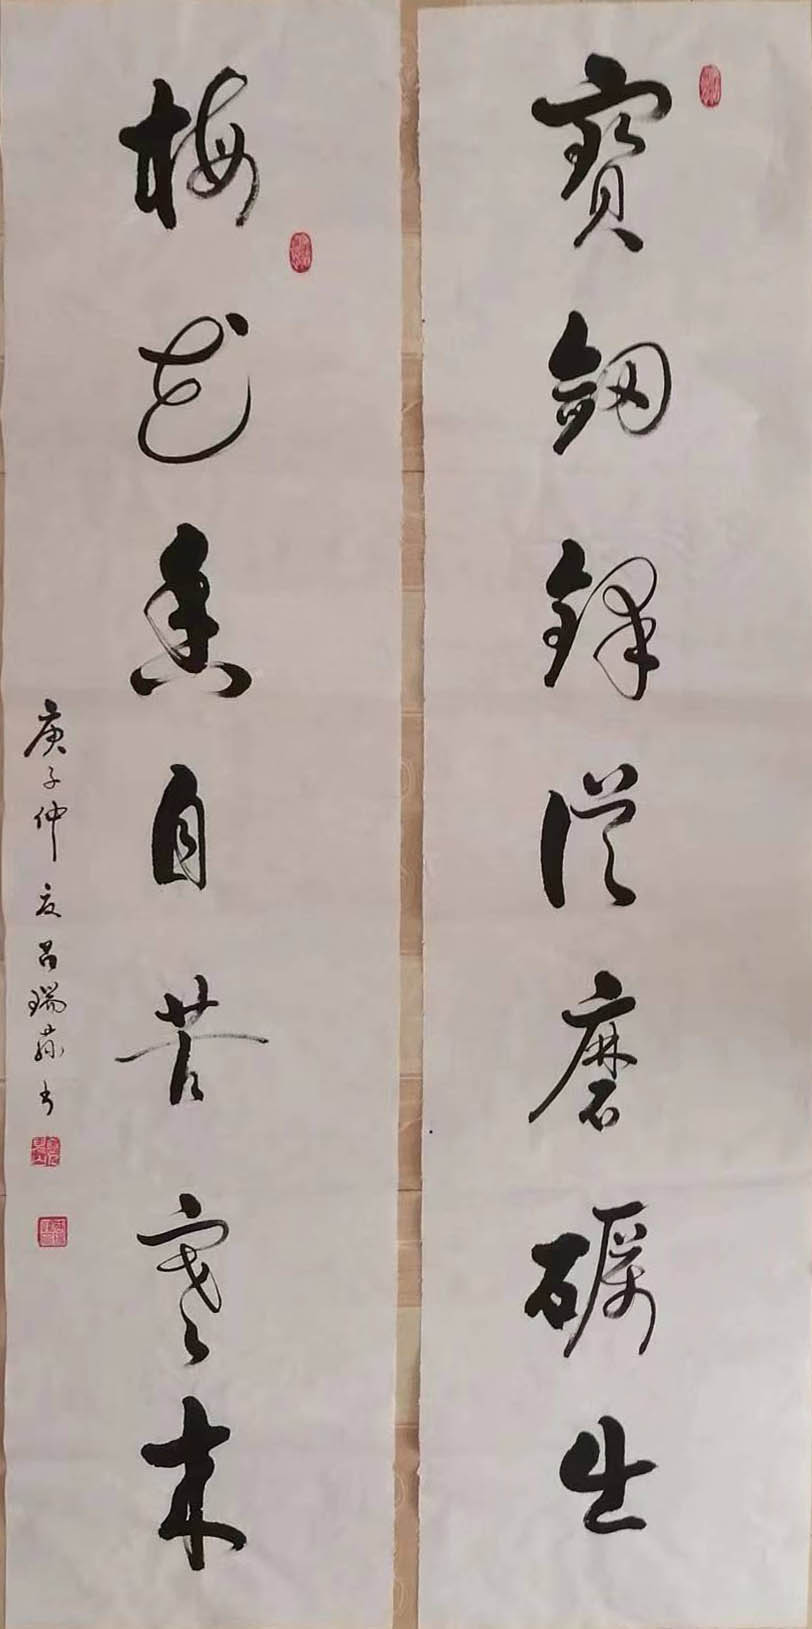 寶劔鋒從磨礪出
梅花香自苦寒來
庚子仲夏呂瑞蓀书